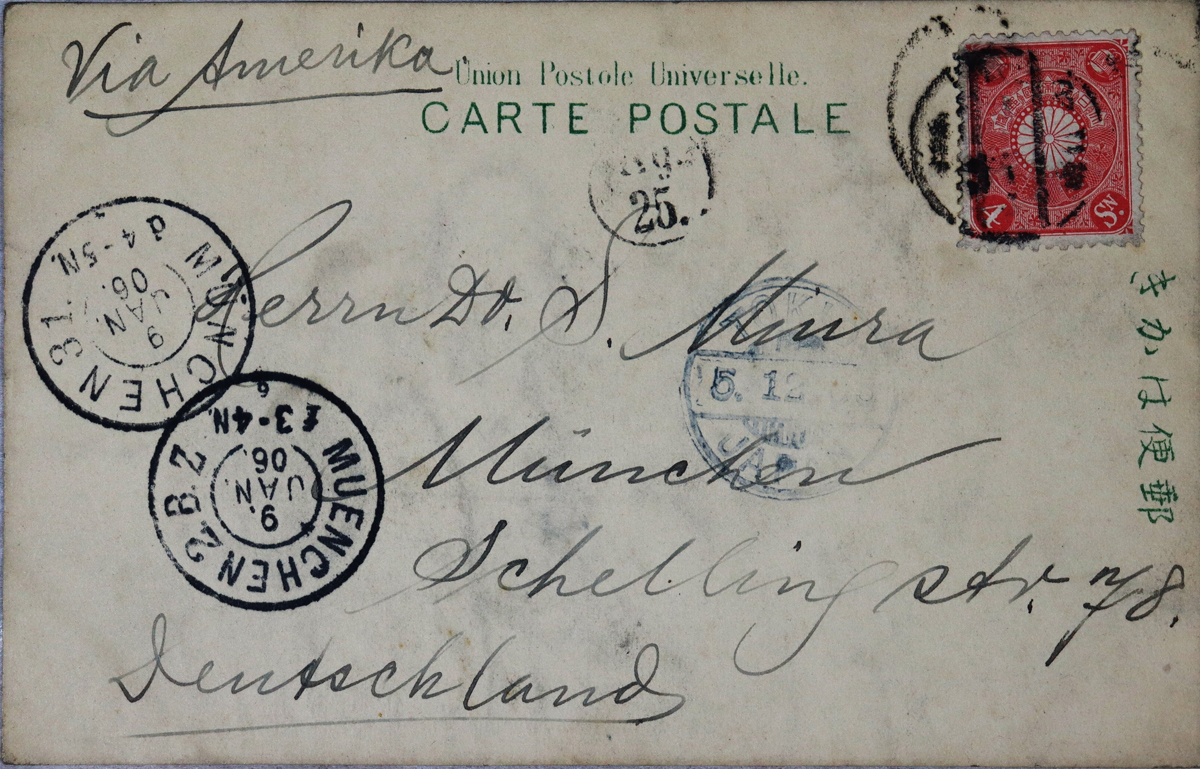 Via Amerika
Union Postole Universelle.
CARTE POSTALE
4 Sn.
25.
きかは便郵
Herrn Dr. S. Miura
München
Schellingstr. 78.
Deutschland
MÜNCHEN 31.
d 4-5N
9
JAN.
06.
MUENCHEN 2 B.Z
£3-4N.
9.
JAN.
06.
5. 12.